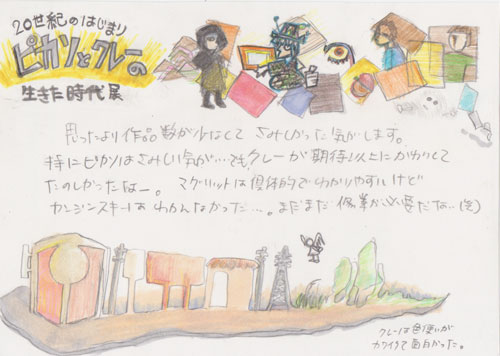 20世紀のはじまり
ピカソとクレーの
生きた時代展
思ったより作品数が少なくて さみしかった気がします。
特にピカソはさみしい気が…でも、クレーが期待以上にかわいくて
たのしかったなー。 マグリットは具体的でわかりやすいけど
カンジンスキーは わかんなかった…。まだまだ 修業が必要だな…(笑)
クレーは色使いが
カワイクて面白かった。